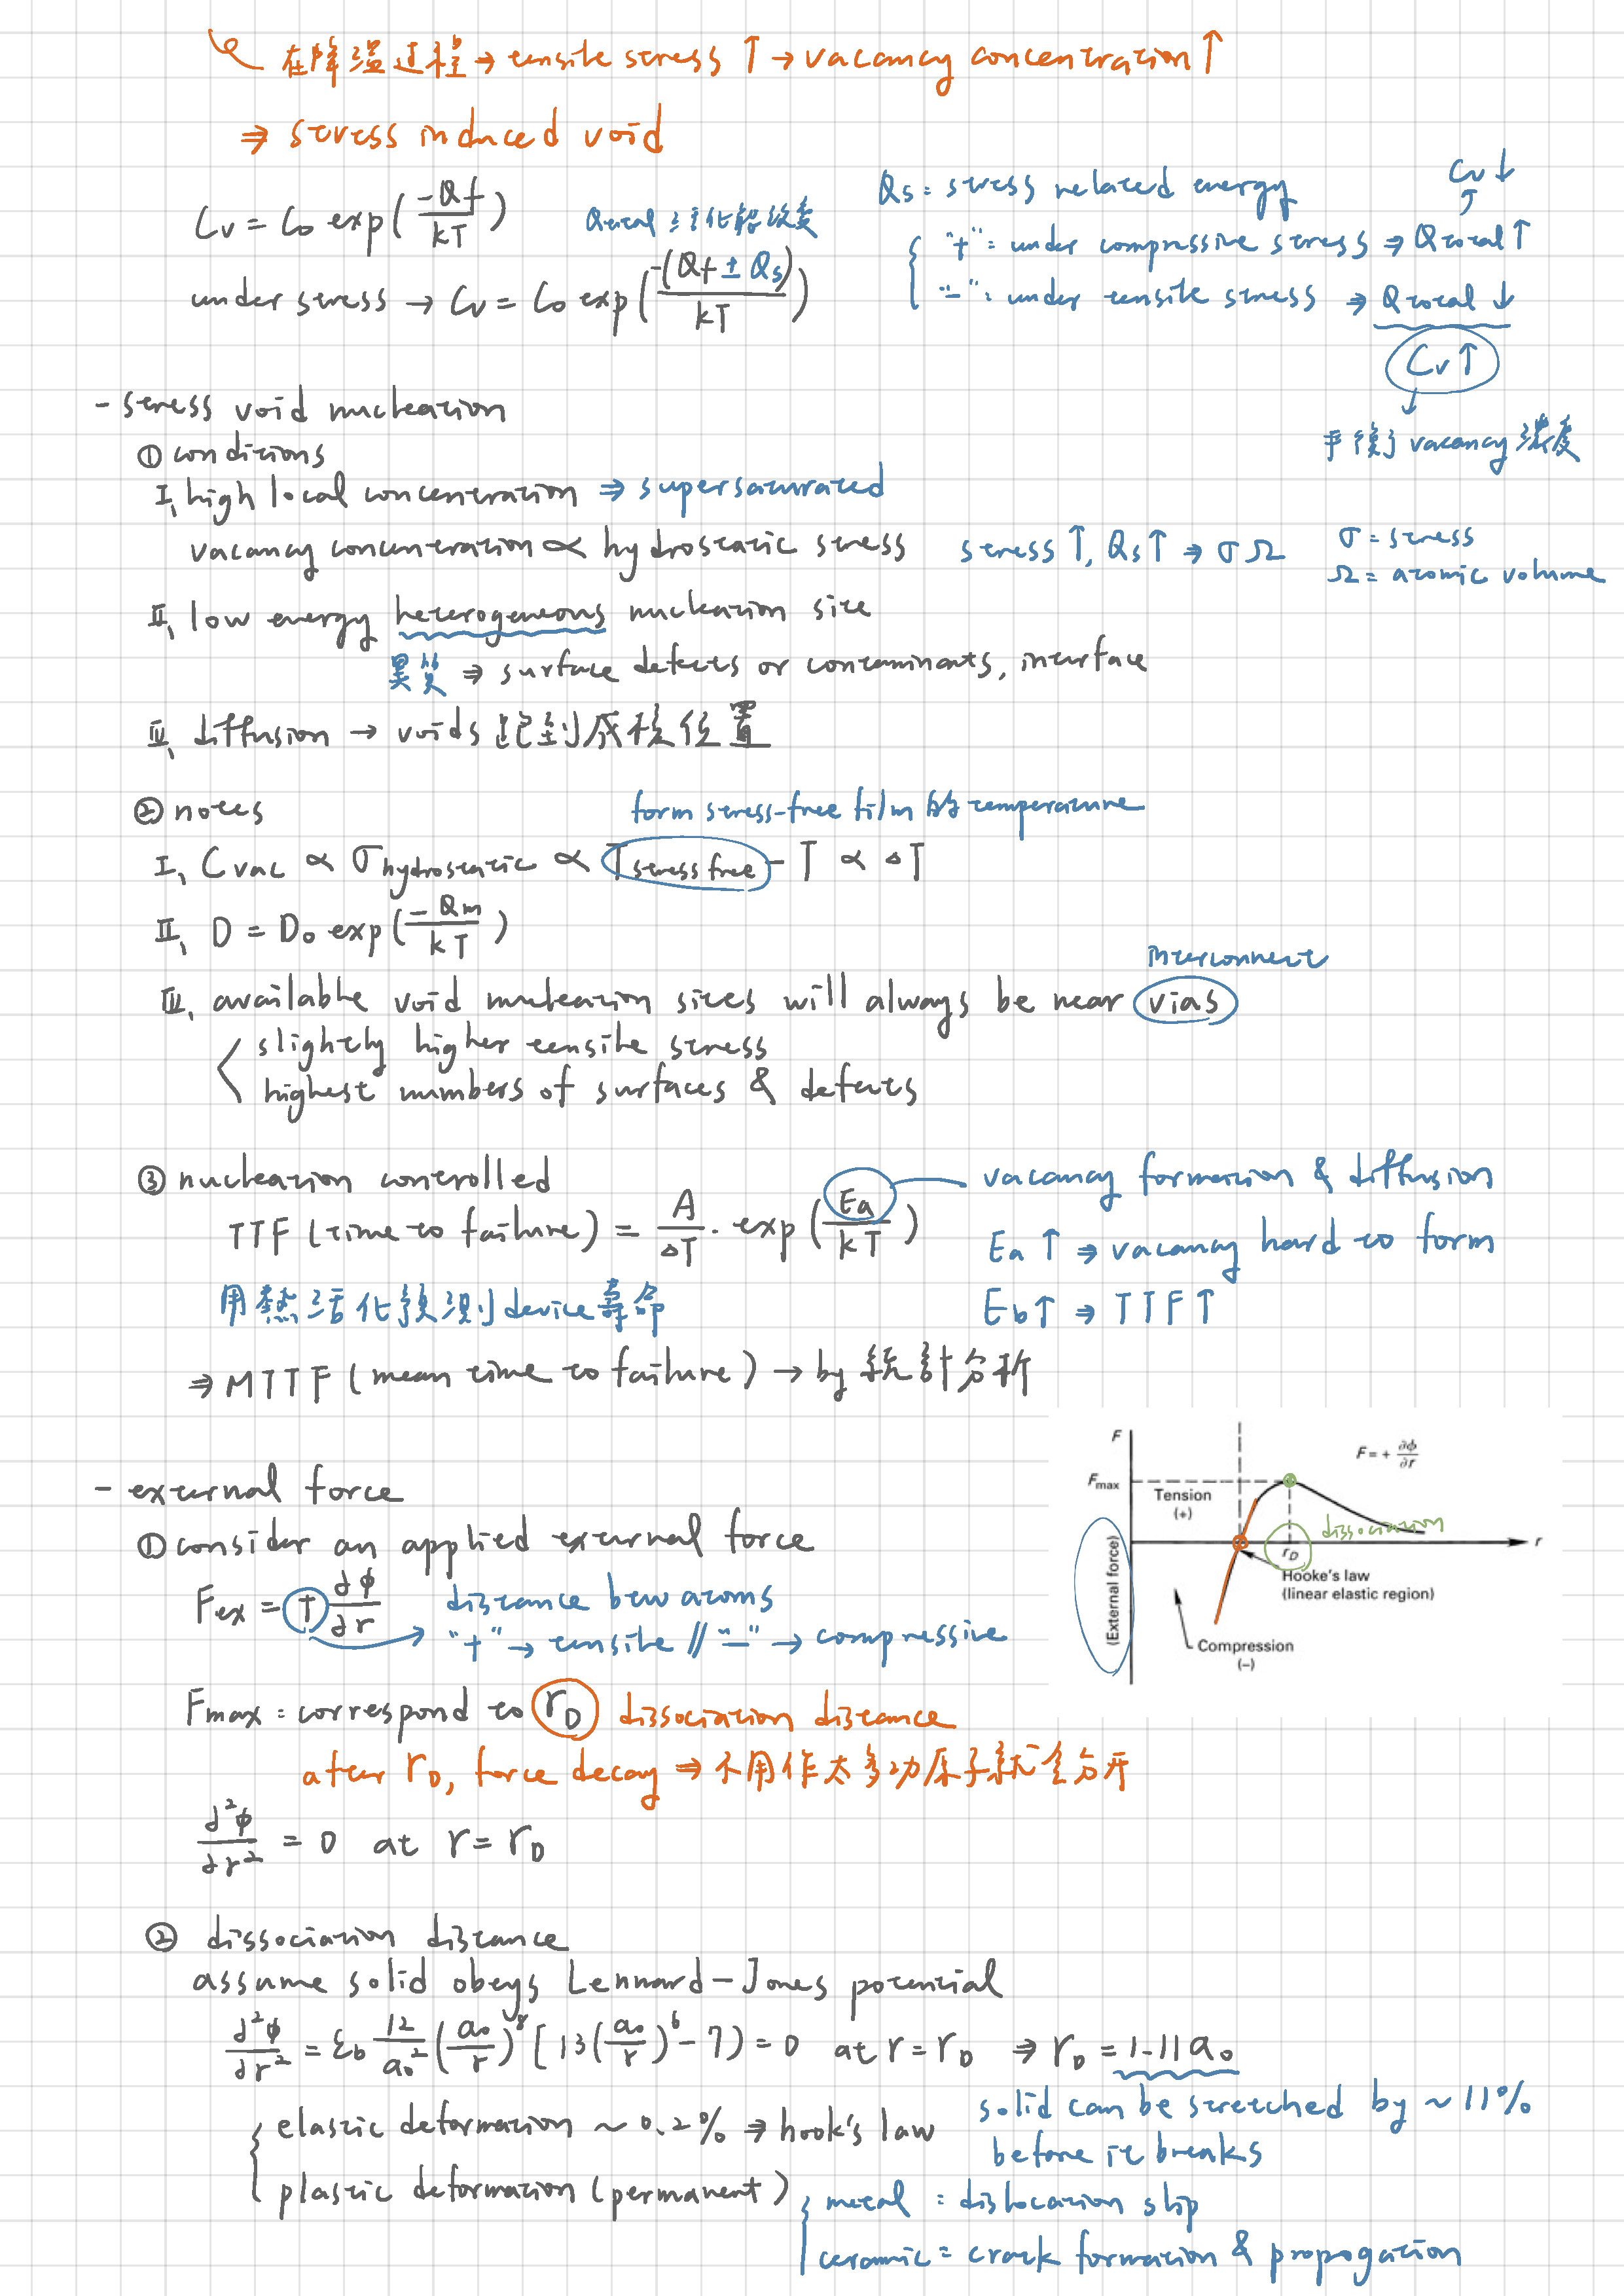 在降溫过程 → tensile stress ↑ → vacancy concentration ↑
⇒ stress induced void
Cv = Co exp(-Qf/kT)
Qtotal 活化能改變
under stress → Cv = Co exp(-(Qf ± Qs)/kT)
Qs = stress related energy
Cv ↓
"+" = under compressive stress ⇒ Qtotal ↑
"-" = under tensile stress ⇒ Qtotal ↓
Cv ↑
平衡 vacancy 濃度
- stress void nucleation
① conditions
I、high local concentration ⇒ supersaturated
vacancy concentration ∝ hydrostatic stress
stress ↑, Qs ↑ ⇒ σΩ
σ = stress
Ω = atomic volume
II、low energy heterogeneous nucleation site
異質 ⇒ surface defects or contaminants, interface
III、diffusion → voids 跑到成核位置
② notes
form stress-free film 的 temperature
I、Cvac ∝ σhydrostatic ∝ Tstress free - T ∝ ΔT
II、D = Do exp(-Qm/kT)
interconnect
III、available void nucleation sites will always be near vias
slightly higher tensile stress
highest numbers of surfaces & defects
③ nucleation controlled
TTF (time to failure) = A/ΔT · exp(Ea/kT)
vacancy formation & diffusion
Ea ↑ ⇒ vacancy hard to form
Eb ↑ ⇒ TTF ↑
用熱活化預測 device 壽命
⇒ MTTF (mean time to failure) → by 統計分析
- external force
① consider an applied external force
Fex = + ∂φ/∂r
distance betw atoms
"+" → tensile // "-" → compressive
F
Fmax
F = + ∂φ/∂r
Tension
(+)
dissociation
rD
r
Hooke's law
(linear elastic region)
(External force)
Compression
(-)
Fmax = correspond to rD dissociation distance
after rD, force decay ⇒ 不用作太多功原子就会分开
∂²φ/∂r² = 0 at r = rD
② dissociation distance
assume solid obeys Lennard-Jones potential
∂²φ/∂r² = εb 12/ao² (ao/r)⁸ [13(ao/r)⁶ - 7] = 0 at r = rD ⇒ rD = 1.11 ao
solid can be stretched by ~ 11%
before it breaks
elastic deformation ~ 0.2% ⇒ hook's law
plastic deformation (permanent)
metal = dislocation slip
ceramic = crack formation & propogation